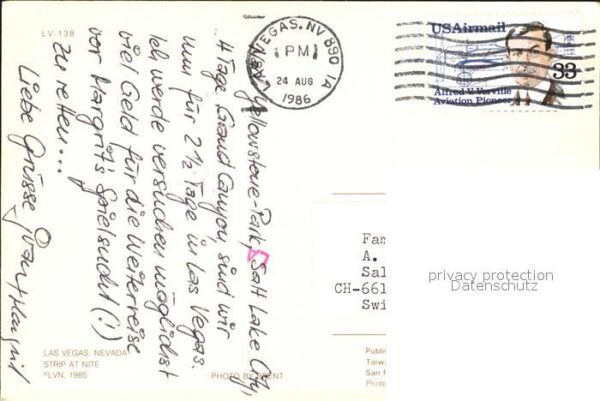 LV-138
LAS VEGAS, NV 890
PM
24 AUG
1986
1A
USAirmail
33
Alfred V. Verville
Aviation Pioneer
Yellowstone-Park, Salt Lake City,
4 Tage Grand Canyon, sind wir
nun für 2 1/2 Tage in Las Vegas.
Ich werde versuchen möglichst
viel Geld für die Weiterreise
vor Margrits Spielsucht (!)
zu retten...
Liebe Grüsse
Fam
A.
Sal
CH-661
Swi
privacy protection
Datenschutz
LAS VEGAS, NEVADA
STRIP AT NITE
©LVN, 1985
PHOTO BY
Publis
Taiwa
San F
Printe